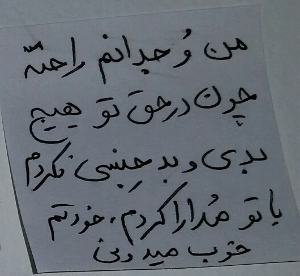 من وُجدانم راحته
چون در حق تو هیچ
بدی و بد جِنسی نکردم
با تو مُدارا کردم، خودتم
خوب میدونی